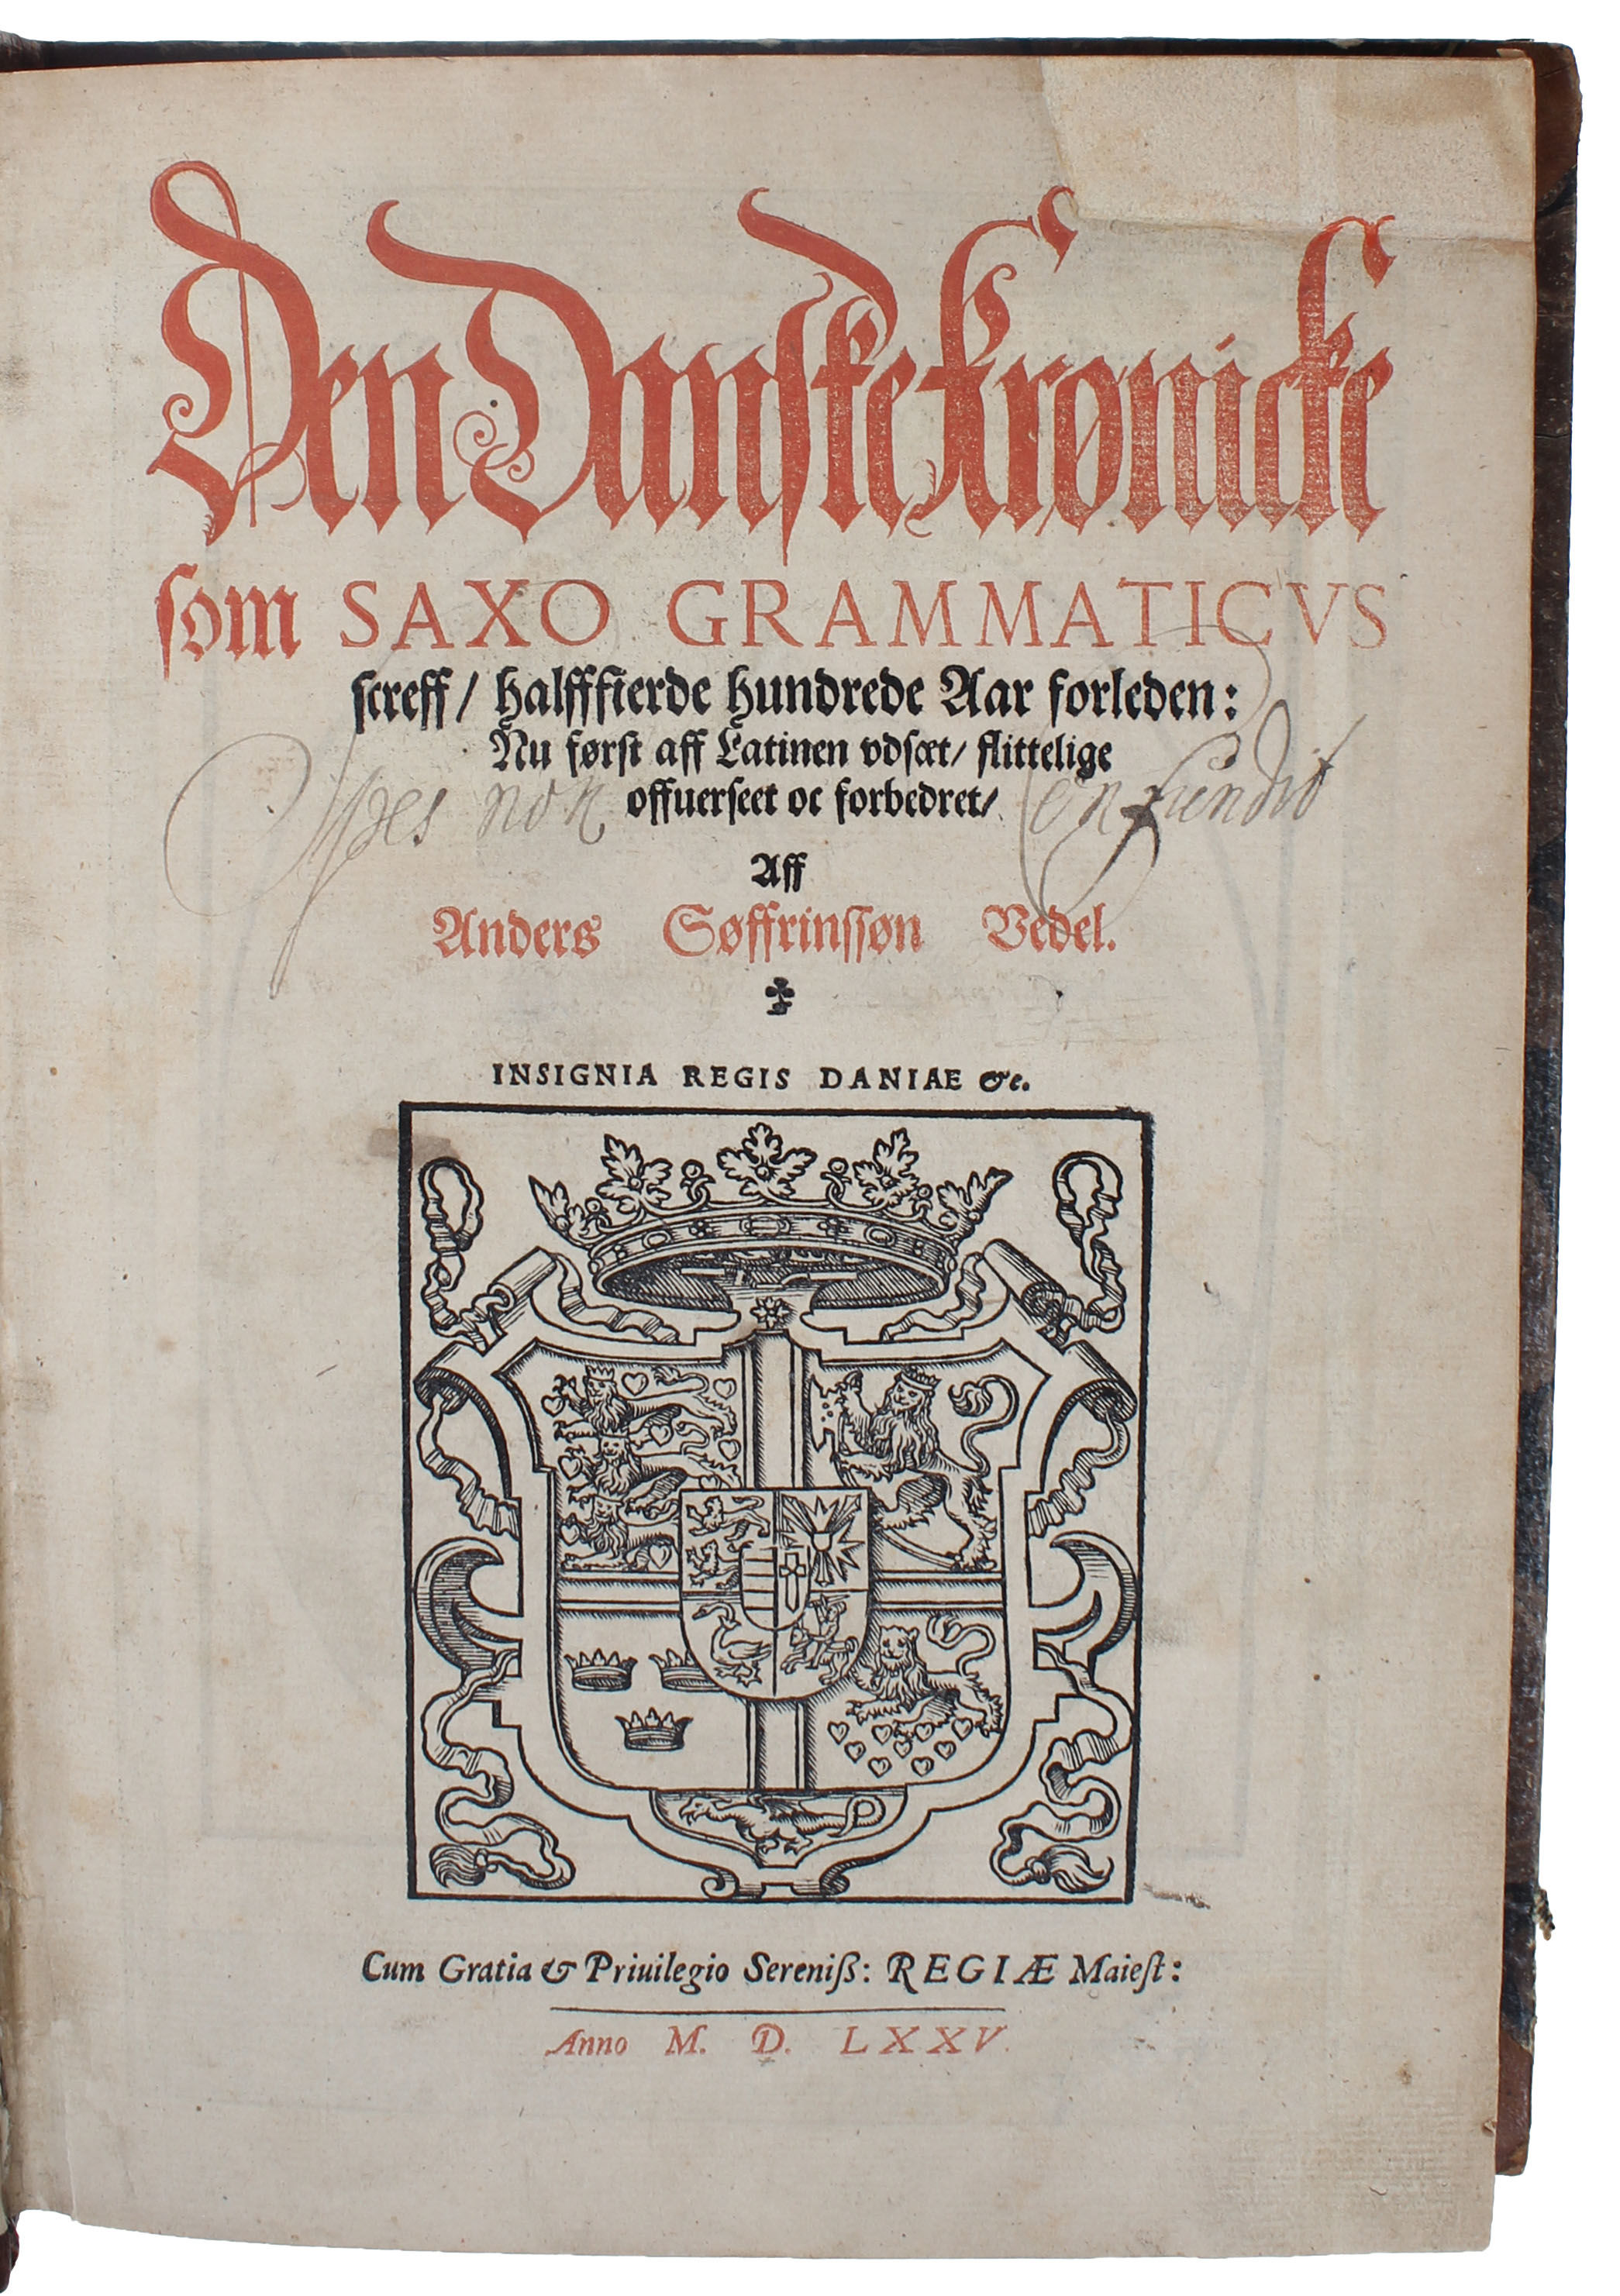 Den Danske Krønicke
som SAXO GRAMMATICVS
screff/ halfffierde hundrede Aar forleden:
Nu først aff Latinen vdsæt/ flittelige
offuerseet oc forbedret/
Spes non confundit
Aff
Anders Søffrinssøn Vedel.
INSIGNIA REGIS DANIAE &c.
Cum Gratia & Priuilegio Sereniß: REGIÆ Maiest:
Anno M. D. LXXV.